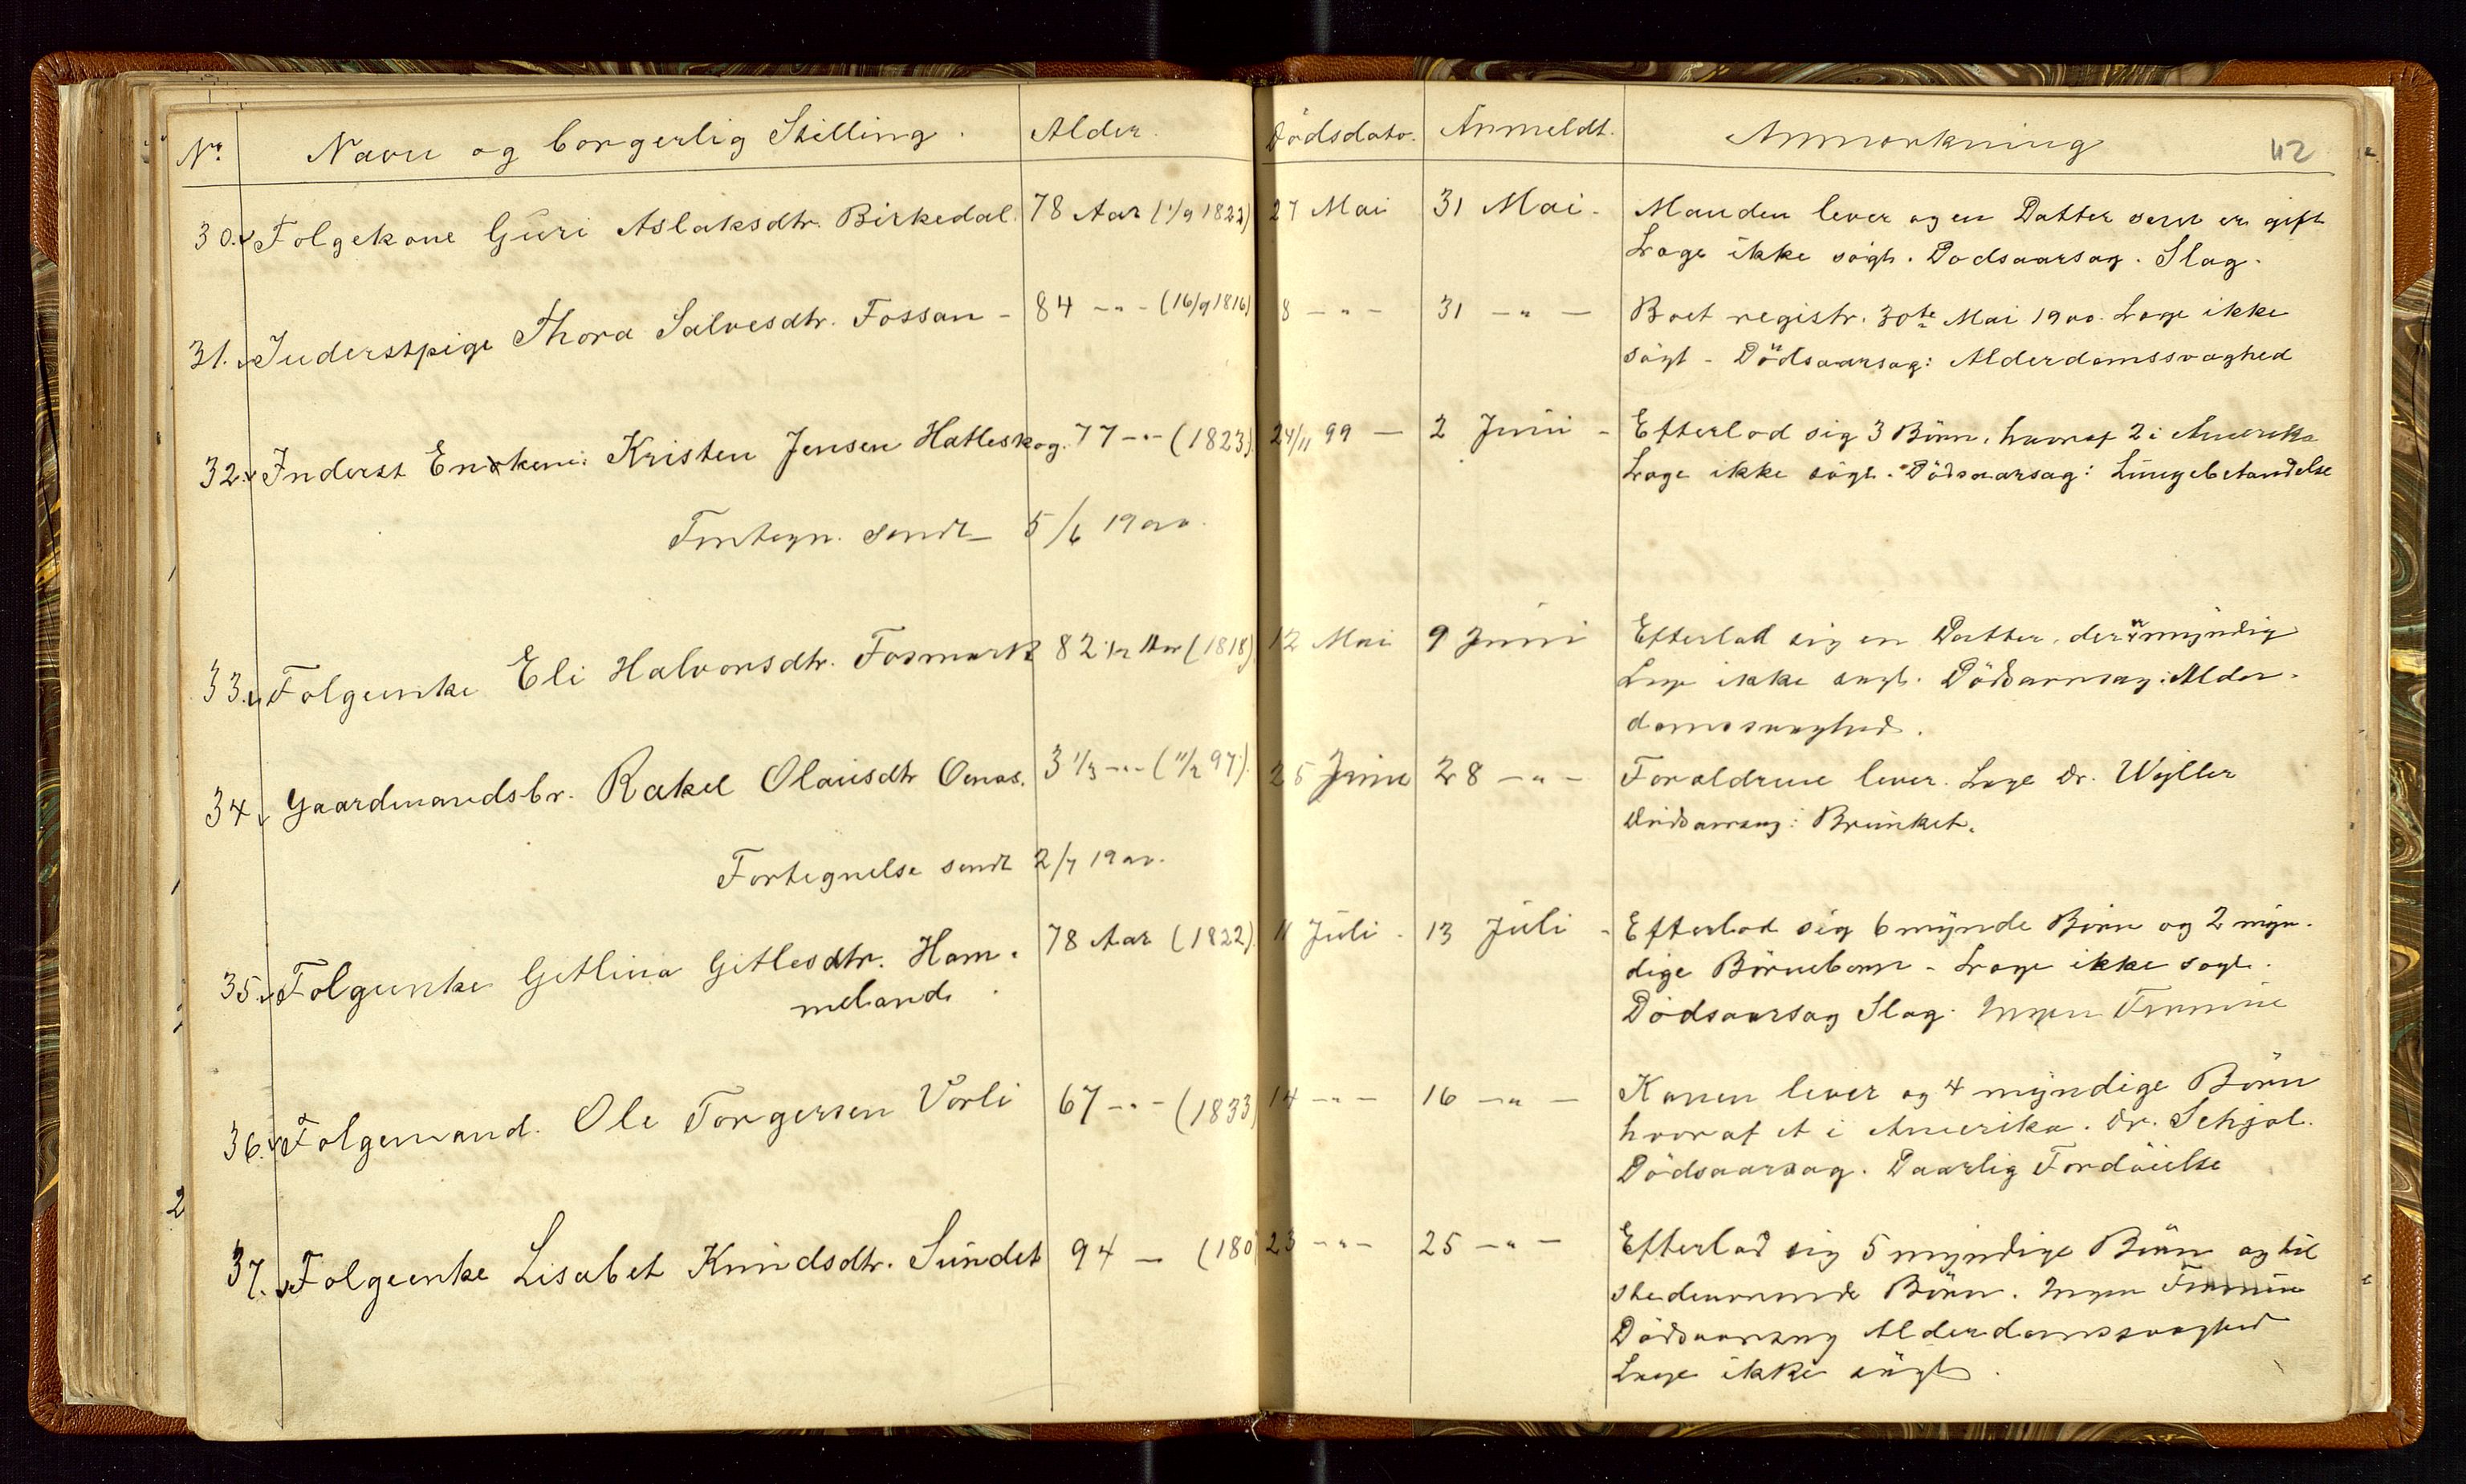 No Navn og borgerlig Stilling. Alder. Dödsdato. Anmeldt. Anmærkning 42
30. Folgekone Guri Aslaksdtr. Birkedal. 78 Aar (1/9 1822) 27 Mai 31 Mai - Manden lever og en Datter som er gift
Læge ikke sögt. Dødsaarsag. Slag.
31. Inderstpige Thora Salvesdtr. Fossan - 84 -"- (16/9 1816) 8 -"- 31 -"- Boet registr. 30te Mai 1900. Læge ikke
sögt - Dödsaarsag: Alderdomssvaghed
32. Inderst Enkem: Kristen Jensen Hatleskog. 77 -"- (1823). 24/11 99 - 2 Juni - Efterlod sig 3 Börn, hvoraf 2 i Amerika
Læge ikke sögt. Dödsaarsag: Lungebetændelse
Fortegn. sendt 5/6 1900.
33. Folgeenke Eli Halvorsdtr. Fosmark 82 1/2 Aar (1818) 12 Mai 9 Juni Efterlod sig en Datter, der er myndig
Læge ikke sögt. Dödsaarsag: Alder-
domssvaghed.
34. Gaardmandsbr. Rakel Olausdtr Oenæs. 3 1/3 -"- (11/2 97). 25 Juni 28 -"- Forældrene lever. Læge Dr. Wyller
Dödsaarsag: Brunket.
Fortegnelse sendt 2/7 1900.
35. Folgeenke Gitlina Gitlesdtr. Ham- 78 Aar (1822). 11 Juli - 13 Juli - Efterlod sig 6 mynde Börn og 2 myn-
meland. dige Börnebørn - Læge ikke sögt.
Dödsaarsag Slag. Ingen Formue
36. Folgemand. Ole Torgersen Vörli 67 -"- (1833) 14 -"- 16 -"- Konen lever og 4 myndige Börn
hvoraf et i Amerika. Dr. Schjøl.
Dödsaarsag. Daarlig Fordöielse
37. Folgeenke Lisabet Knudsdtr. Sundet 94 - (180 23 -"- 25 -"- Efterlod sig 5 myndige Börn og til
stedeværende Börn. Ingen Formue
Dödsaarsag Alderdomssvaghed
Læge ikke sögt.